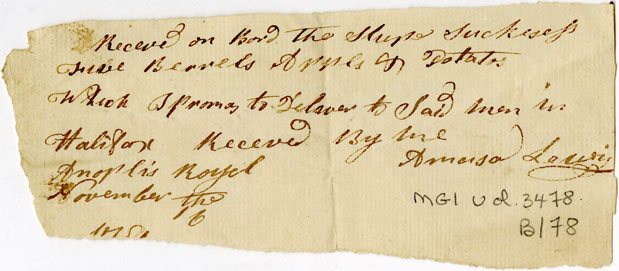 Receved on Bord the Slupe Suckesess
Five Berrels Apples & Potatos
Which I promas to Delaver to Said men in
Halifax Receved By me
Anoplis Royel Amasa Lewis
November the
16
MG1 Vol. 3478
B/78